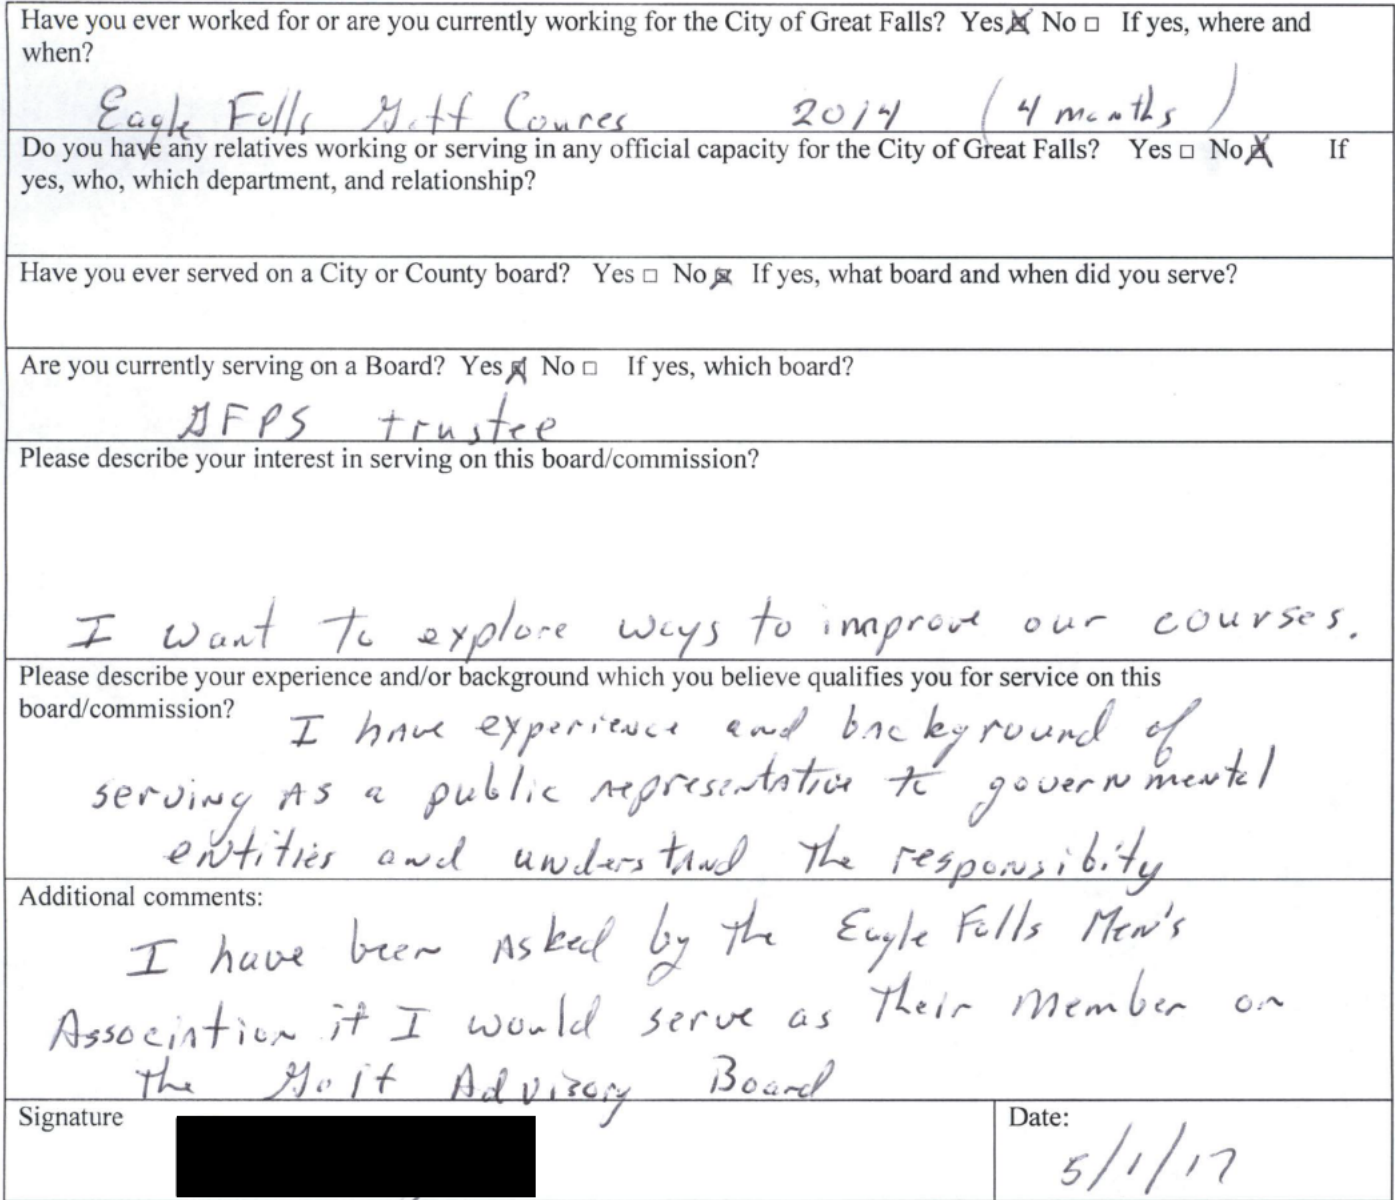 Have you ever worked for or are you currently working for the City of Great Falls? Yes ☒ No □ If yes, where and
when?
Eagle Falls Golf Coures 2014 (4 months)
Do you have any relatives working or serving in any official capacity for the City of Great Falls? Yes □ No ☒ If
yes, who, which department, and relationship?
Have you ever served on a City or County board? Yes □ No ☒ If yes, what board and when did you serve?
Are you currently serving on a Board? Yes ☒ No □ If yes, which board?
GFPS trustee
Please describe your interest in serving on this board/commission?
I want to explore ways to improve our courses.
Please describe your experience and/or background which you believe qualifies you for service on this
board/commission? I have experience and background of
serving as a public representative to governmental
entities and understand the responsibity
Additional comments:
I have been asked by the Eagle Falls Men's
Association if I would serve as their member on
the Golf Advisory Board
Signature Date:
5/1/17